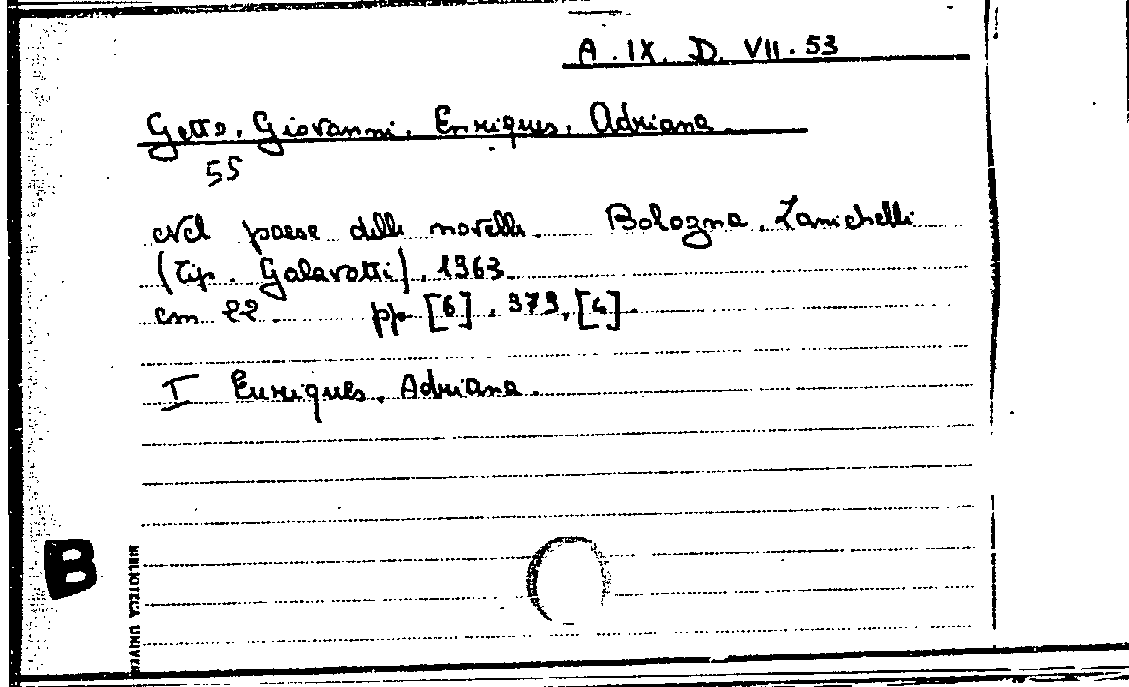 A. IX. D. VII. 53
Getto, Giovanni, Enriques, Adriana
55
Nel paese delle novelle. Bologna, Zanichelli
(Tip. Galavotti), 1963.
cm 22. pp. [6], 979, [4].
I Enriques, Adriana.
B
BIBLIOTECA